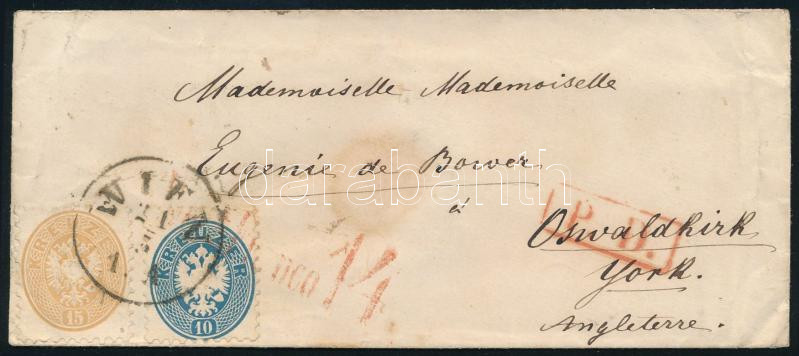 Mademoiselle Mademoiselle
Eugenie de Bower
à
Oswaldkirk
York.
Angleterre.
P.D.
WIEN
KREUZER
15
KREUZER
10
darabanth